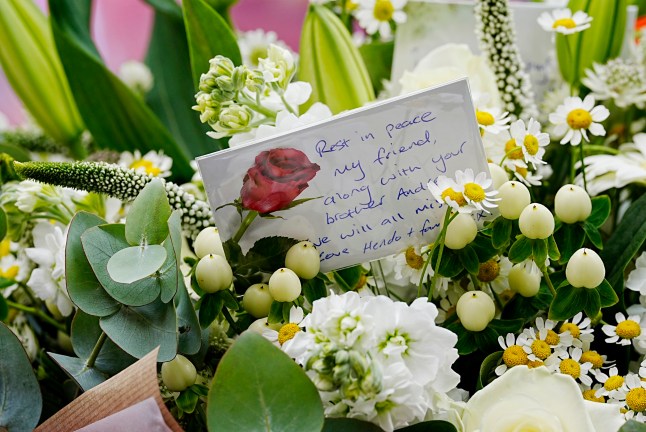 Rest in peace
my friend,
along with your
brother And
we will all mi
Love Hendo + fam